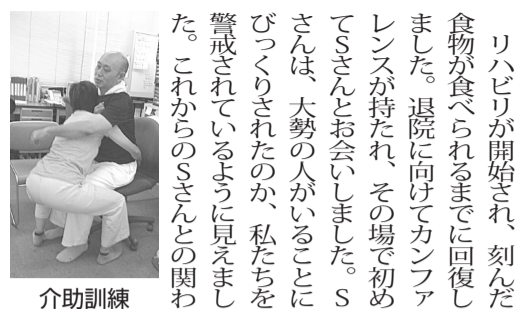 リハビリが開始され、刻んだ
食物が食べられるまでに回復し
ました。退院に向けてカンファ
レンスが持たれ、その場で初め
てSさんとお会いしました。S
さんは、大勢の人がいることに
びっくりされたのか、私たちを
警戒されているように見えまし
た。これからのSさんとの関わ
介助訓練